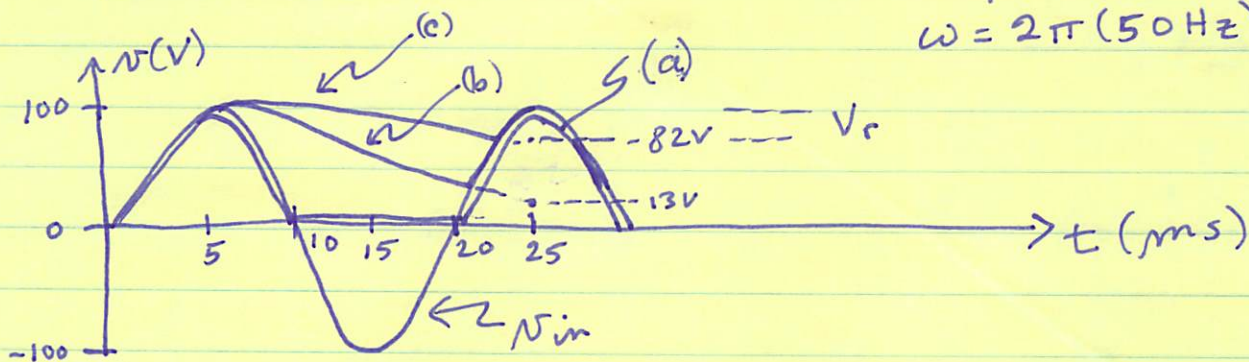 ω = 2π(50Hz)
v(V)
(c)
(b)
(a)
100
82V
Vr
13V
0
5
10
15
20
25
t (ms)
vin
-100